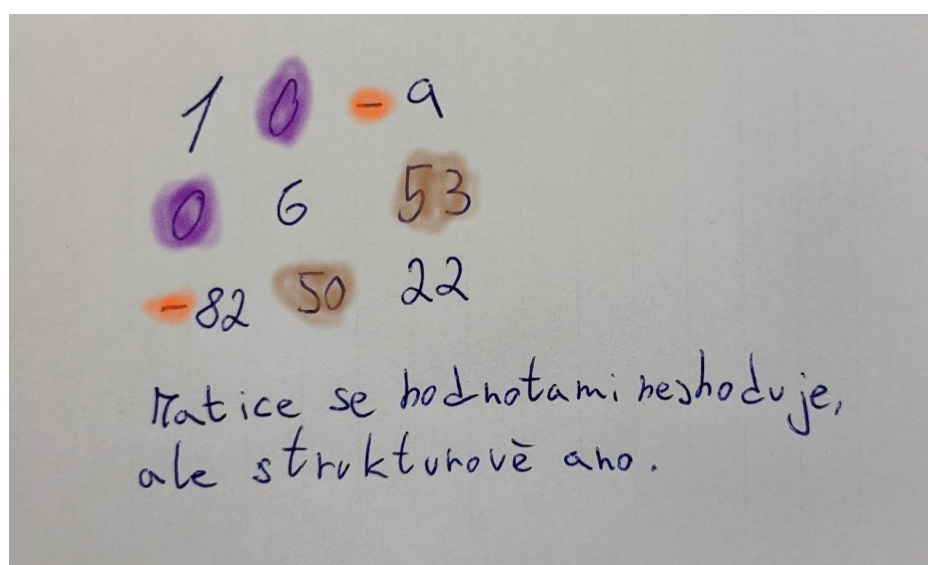 1 0 - 9
0 6 53
-82 50 22
Matice se hodnotami neshoduje,
ale strukturově ano.